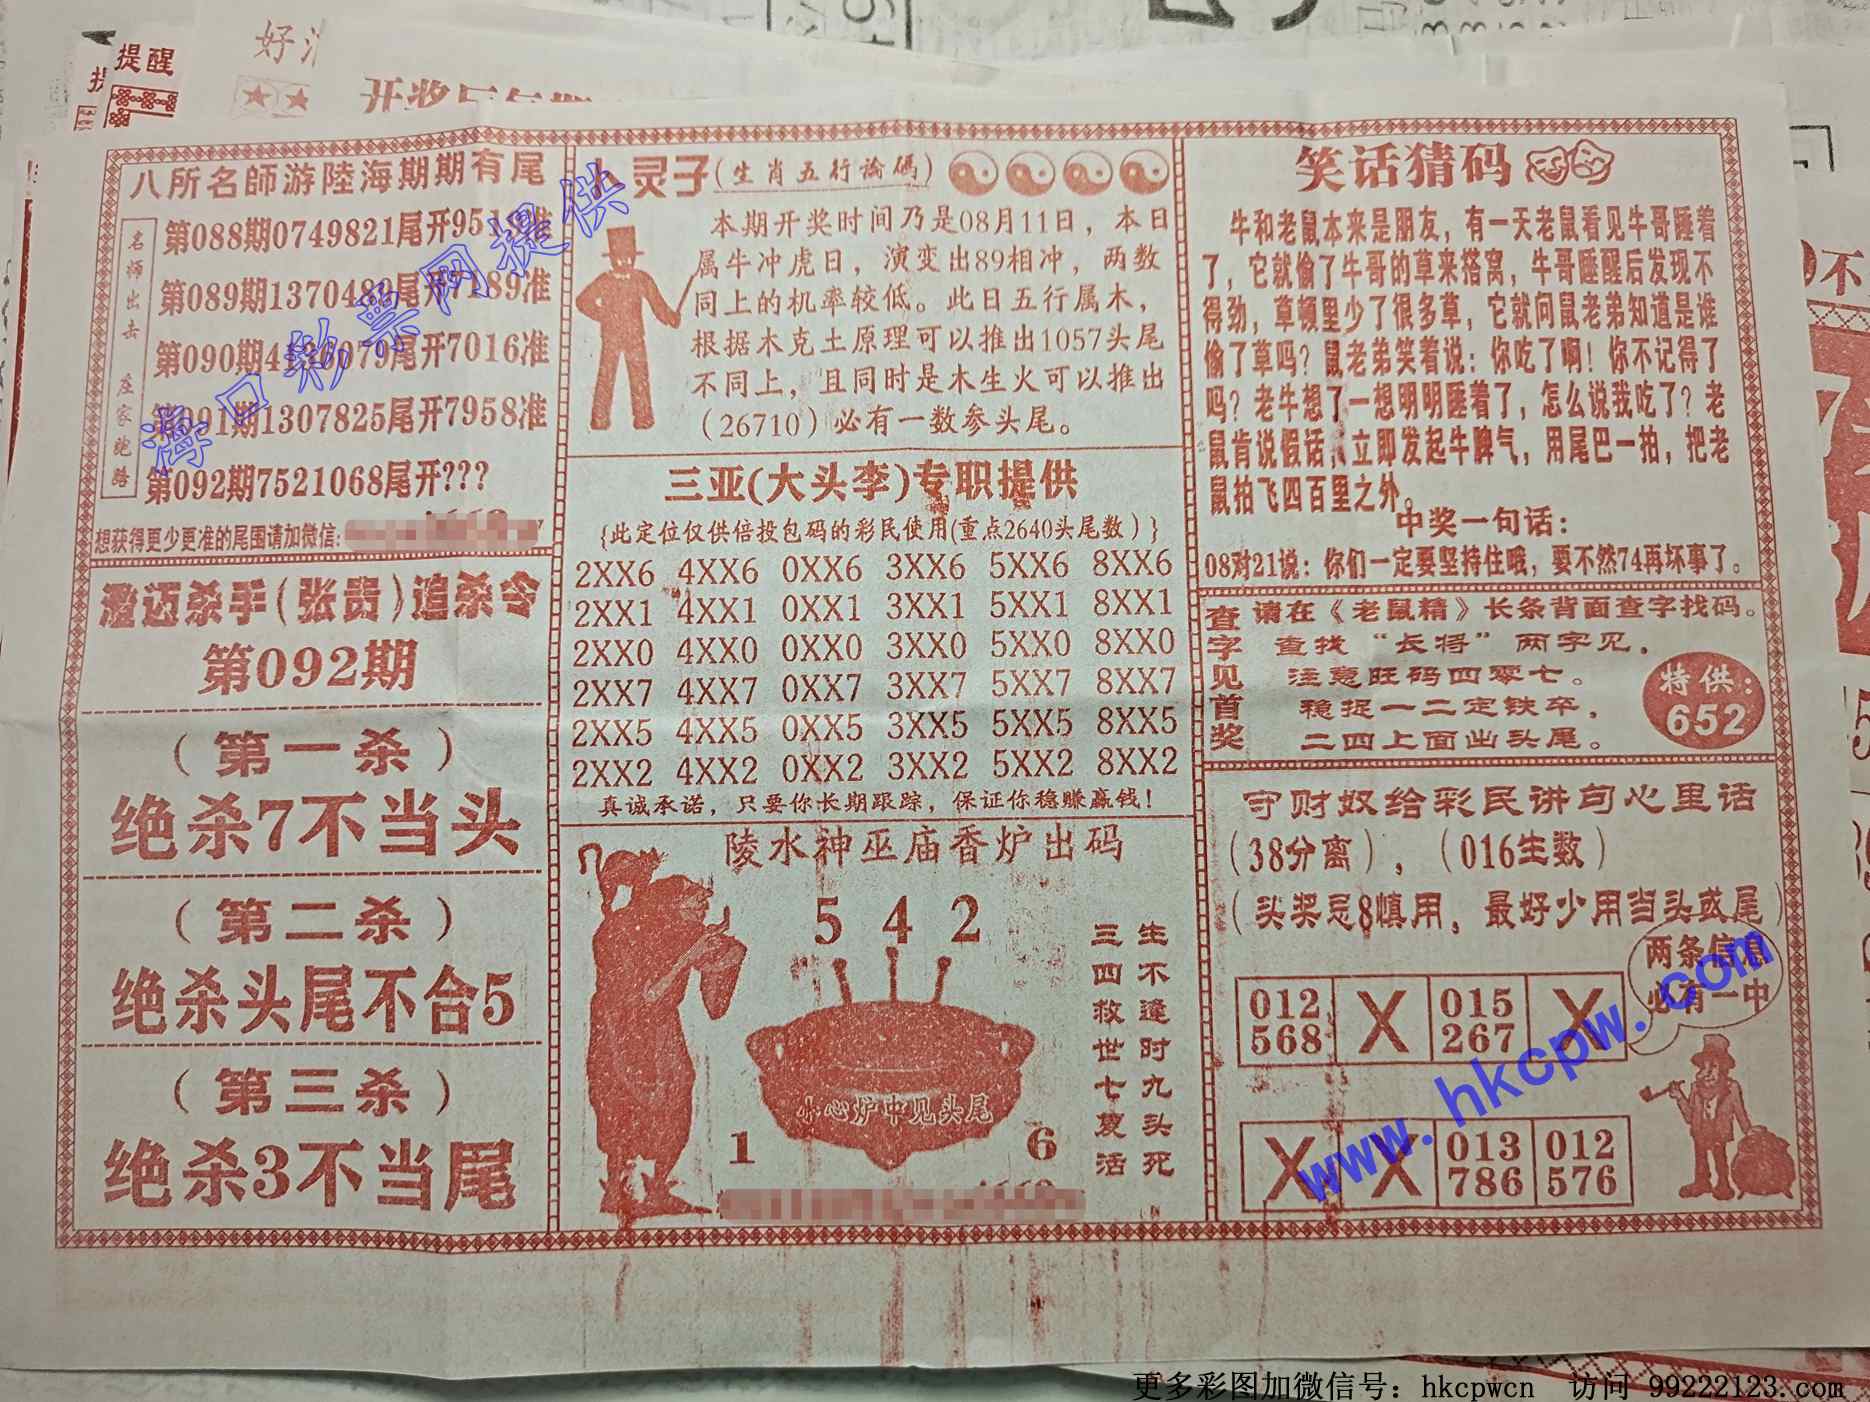 提醒
好
八所名師游陸海期期有尾
名师出击 庄家跑路
第088期0749821尾开951准
第089期137048尾开7189准
第090期4079尾开7016准
第091期1307825尾开7958准
第092期7521068尾开???
想获得更少更准的尾围请加微信:
澄迈杀手(张贵)追杀令
第092期
(第一杀)
绝杀7不当头
(第二杀)
绝杀头尾不合5
(第三杀)
绝杀3不当尾
卜灵子(生肖五行論碼)
本期开奖时间乃是08月11日，本日
属牛冲虎日，演变出89相冲，两数
同上的机率较低。此日五行属木，
根据木克土原理可以推出1057头尾
不同上，且同时是木生火可以推出
(26710)必有一数参头尾。
三亚(大头李)专职提供
{此定位仅供倍投包码的彩民使用(重点2640头尾数)}
2XX6 4XX6 0XX6 3XX6 5XX6 8XX6
2XX1 4XX1 0XX1 3XX1 5XX1 8XX1
2XX0 4XX0 0XX0 3XX0 5XX0 8XX0
2XX7 4XX7 0XX7 3XX7 5XX7 8XX7
2XX5 4XX5 0XX5 3XX5 5XX5 8XX5
2XX2 4XX2 0XX2 3XX2 5XX2 8XX2
真诚承诺，只要你长期跟踪，保证你稳赚赢钱!
陵水神巫庙香炉出码
5 4 2
小心炉中见头尾
1 6
生不逢时九头死
三四救世七复活
笑话猜码
牛和老鼠本来是朋友，有一天老鼠看见牛哥睡着
了，它就偷了牛哥的草来搭窝，牛哥睡醒后发现不
得劲，草顿里少了很多草，它就问鼠老弟知道是谁
偷了草吗？鼠老弟笑着说：你吃了啊！你不记得了
吗？老牛想了一想明明睡着了，怎么说我吃了？老
鼠肯说假话，立即发起牛脾气，用尾巴一拍，把老
鼠拍飞四百里之外。
中奖一句话：
08对21说：你们一定要坚持住哦，要不然74再坏事了。
查字见首奖
请在《老鼠精》长条背面查字找码。
查找“长将”两字见，
注意旺码四零七。
稳捉一二定铁卒，
二四上面出头尾。
特供：
652
守财奴给彩民讲句心里话
(38分离)，(016生数)
(头奖忌8慎用，最好少用当头或尾)
两条信息
必有一中
012 X 015 X
568 267
X X 013 012
786 576
海口彩票网提供
www.hkcpw.com
更多彩图加微信号：hkcpwcn 访问 99222123.com